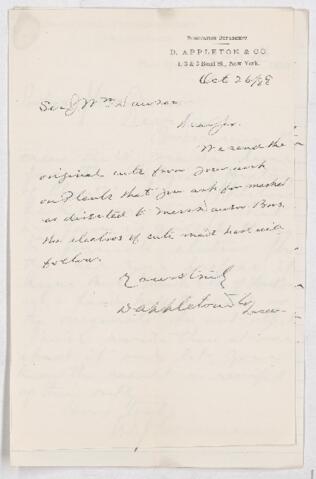 D. APPLETON & CO.
1, 3 & 5 Bond St., New York.
Oct 26/89
Sir J Wm Dawson
Dear Sir.
We send the
original cuts from your work
on Plants that you ask for marked
as directed to Messrs Dawson Bros.
The electros of cuts made here will
follow.
Yours truly
D Appleton & Co